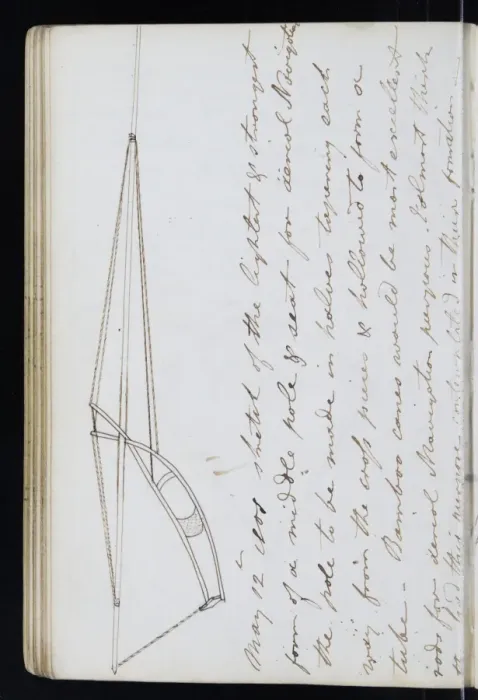 May 12th 1808 sketch of the lightest & strongest
form of a middle pole & seat for aerial Navigation
the pole to be made in halves tapering each
way from the cross pieces & hollowed to form a
tube - Bamboo canes would be most excellent
rods for aerial Navigation purposes. I almost think
this purpose contemplated in their formation -